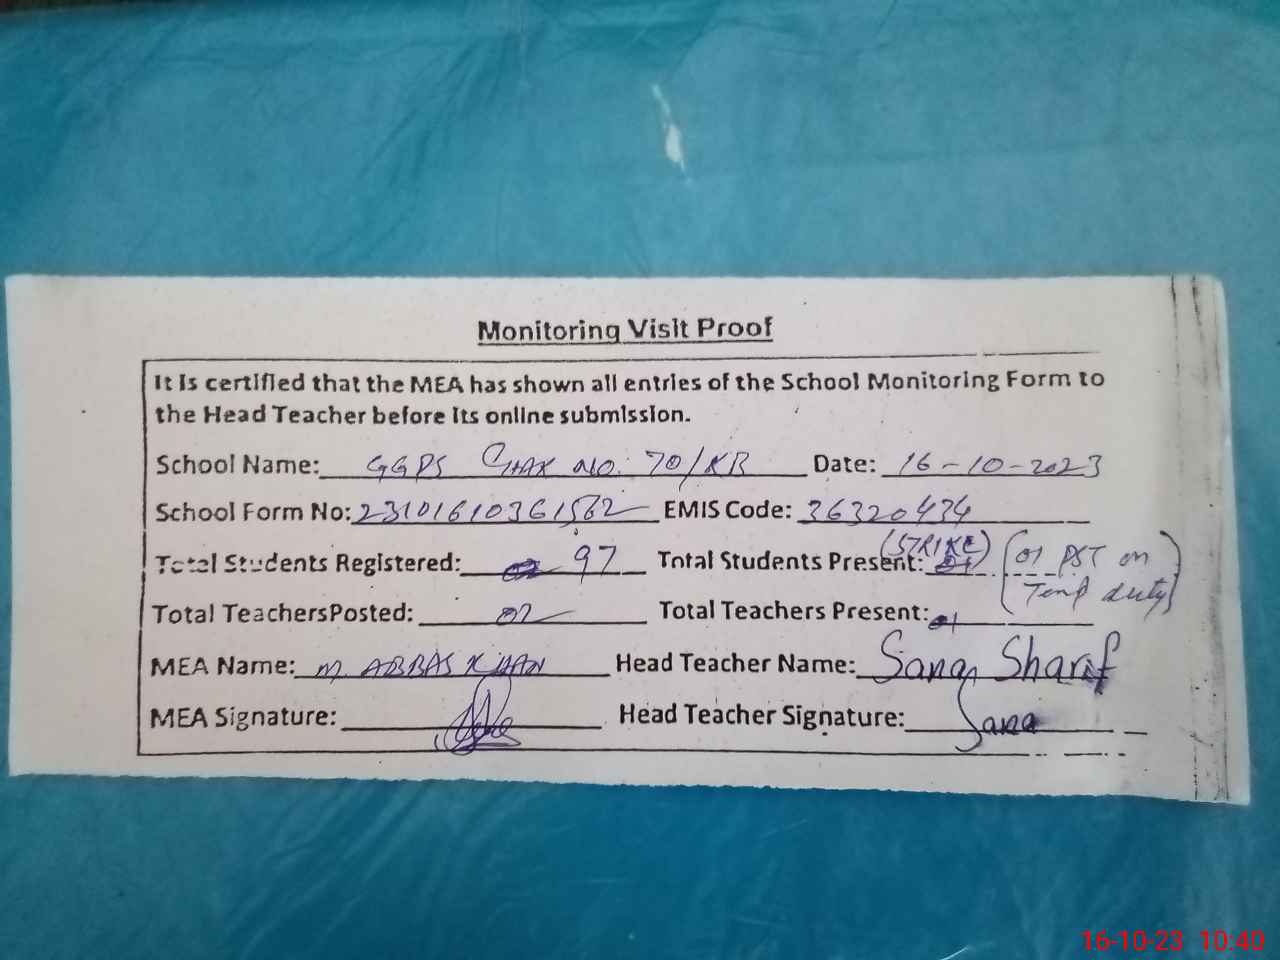 Monitoring Visit Proof
It is certified that the MEA has shown all entries of the School Monitoring Form to
the Head Teacher before its online submission.
School Name: GGPS CHAK NO. 70/KB Date: 16-10-2023
School Form No: 23101610361562 EMIS Code: 36320434
Total Students Registered: 97 Total Students Present: (STRIKE) (01 PST on
Temp duty)
Total Teachers Posted: 02 Total Teachers Present: 01
MEA Name: M. ABBAS KHAN Head Teacher Name: Sana Sharif
MEA Signature: Head Teacher Signature: Sana
16-10-23 10:40